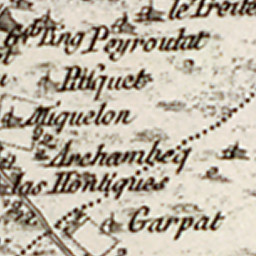 le Treite
Ting Peyroutat
Piquet
Miquelon
Archambeq
las Hontiques
Garpat